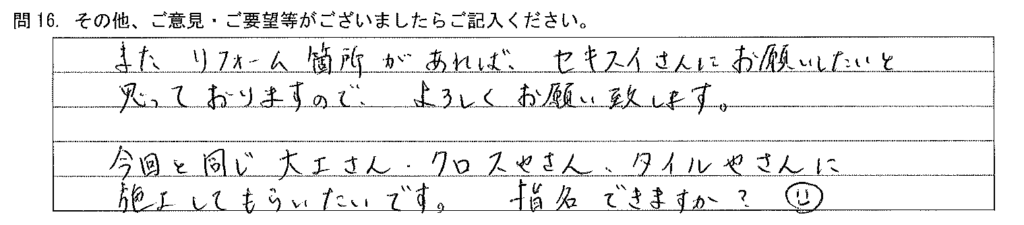 問16. その他、ご意見・ご要望等がございましたらご記入ください。
また リフォーム箇所があれば、 セキスイさんにお願いしたいと
思っておりますので、 よろしくお願い致します。
今回と同じ 大工さん・クロスやさん、タイルやさんに
施工してもらいたいです。 指名できますか?